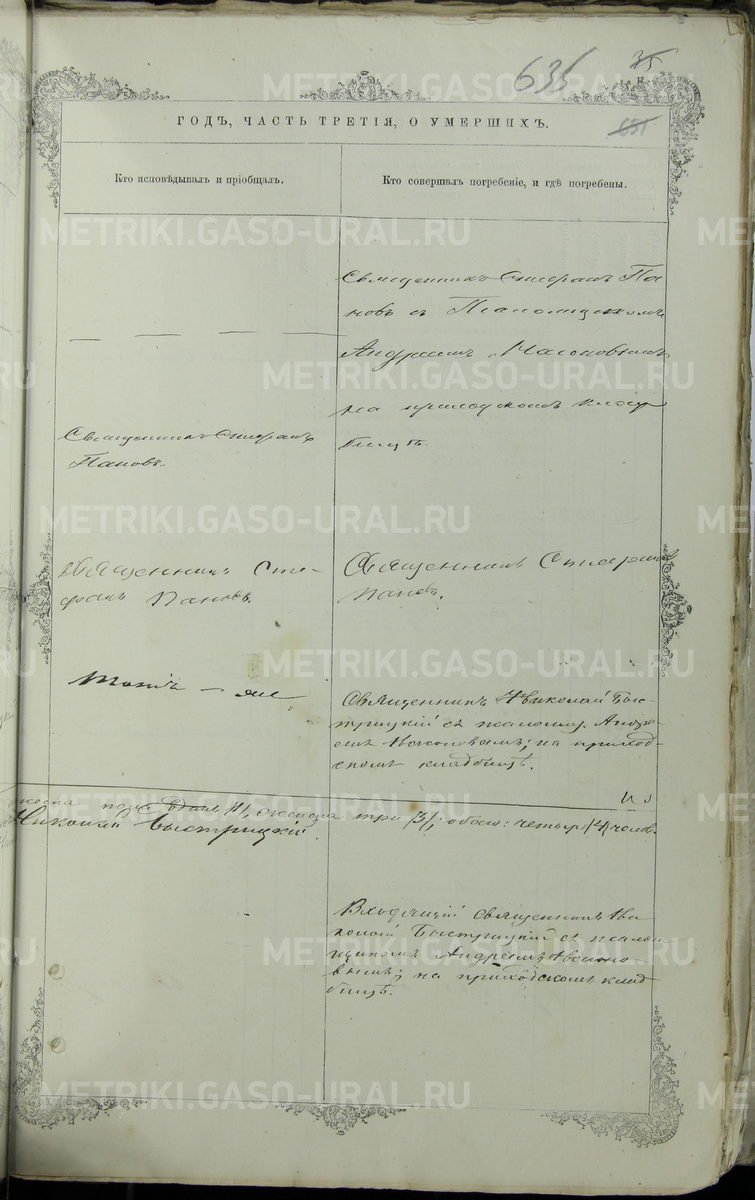 635
35
651
ГОДЪ, ЧАСТЬ ТРЕТІЯ, О УМЕРШИХЪ.
Кто исповѣдывалъ и пріобщалъ.
Кто совершалъ погребеніе, и гдѣ погребены.
Священникъ Стефанъ Па
новъ съ Псаломщикомъ
Андреемъ
на приходскомъ клад
бищѣ.
Священникъ Стефанъ
Пановъ.
Священникъ Сте-
фанъ Пановъ.
Священникъ Стефанъ
Пановъ.
Тотъ-же
Священникъ Николай Быс-
трицкій съ псаломщ. Андре-
емъ на приход-
скомъ кладбищѣ.
одинъ /1/, женска три /3/, обоего: четыре /4/ челов.
Николай Быстрицкій.
священникъ Ни
колай Быстрицкій съ псалом-
щикомъ Андреемъ
на приходскомъ клад
бищѣ.
METRIKI.GASO-URAL.RU